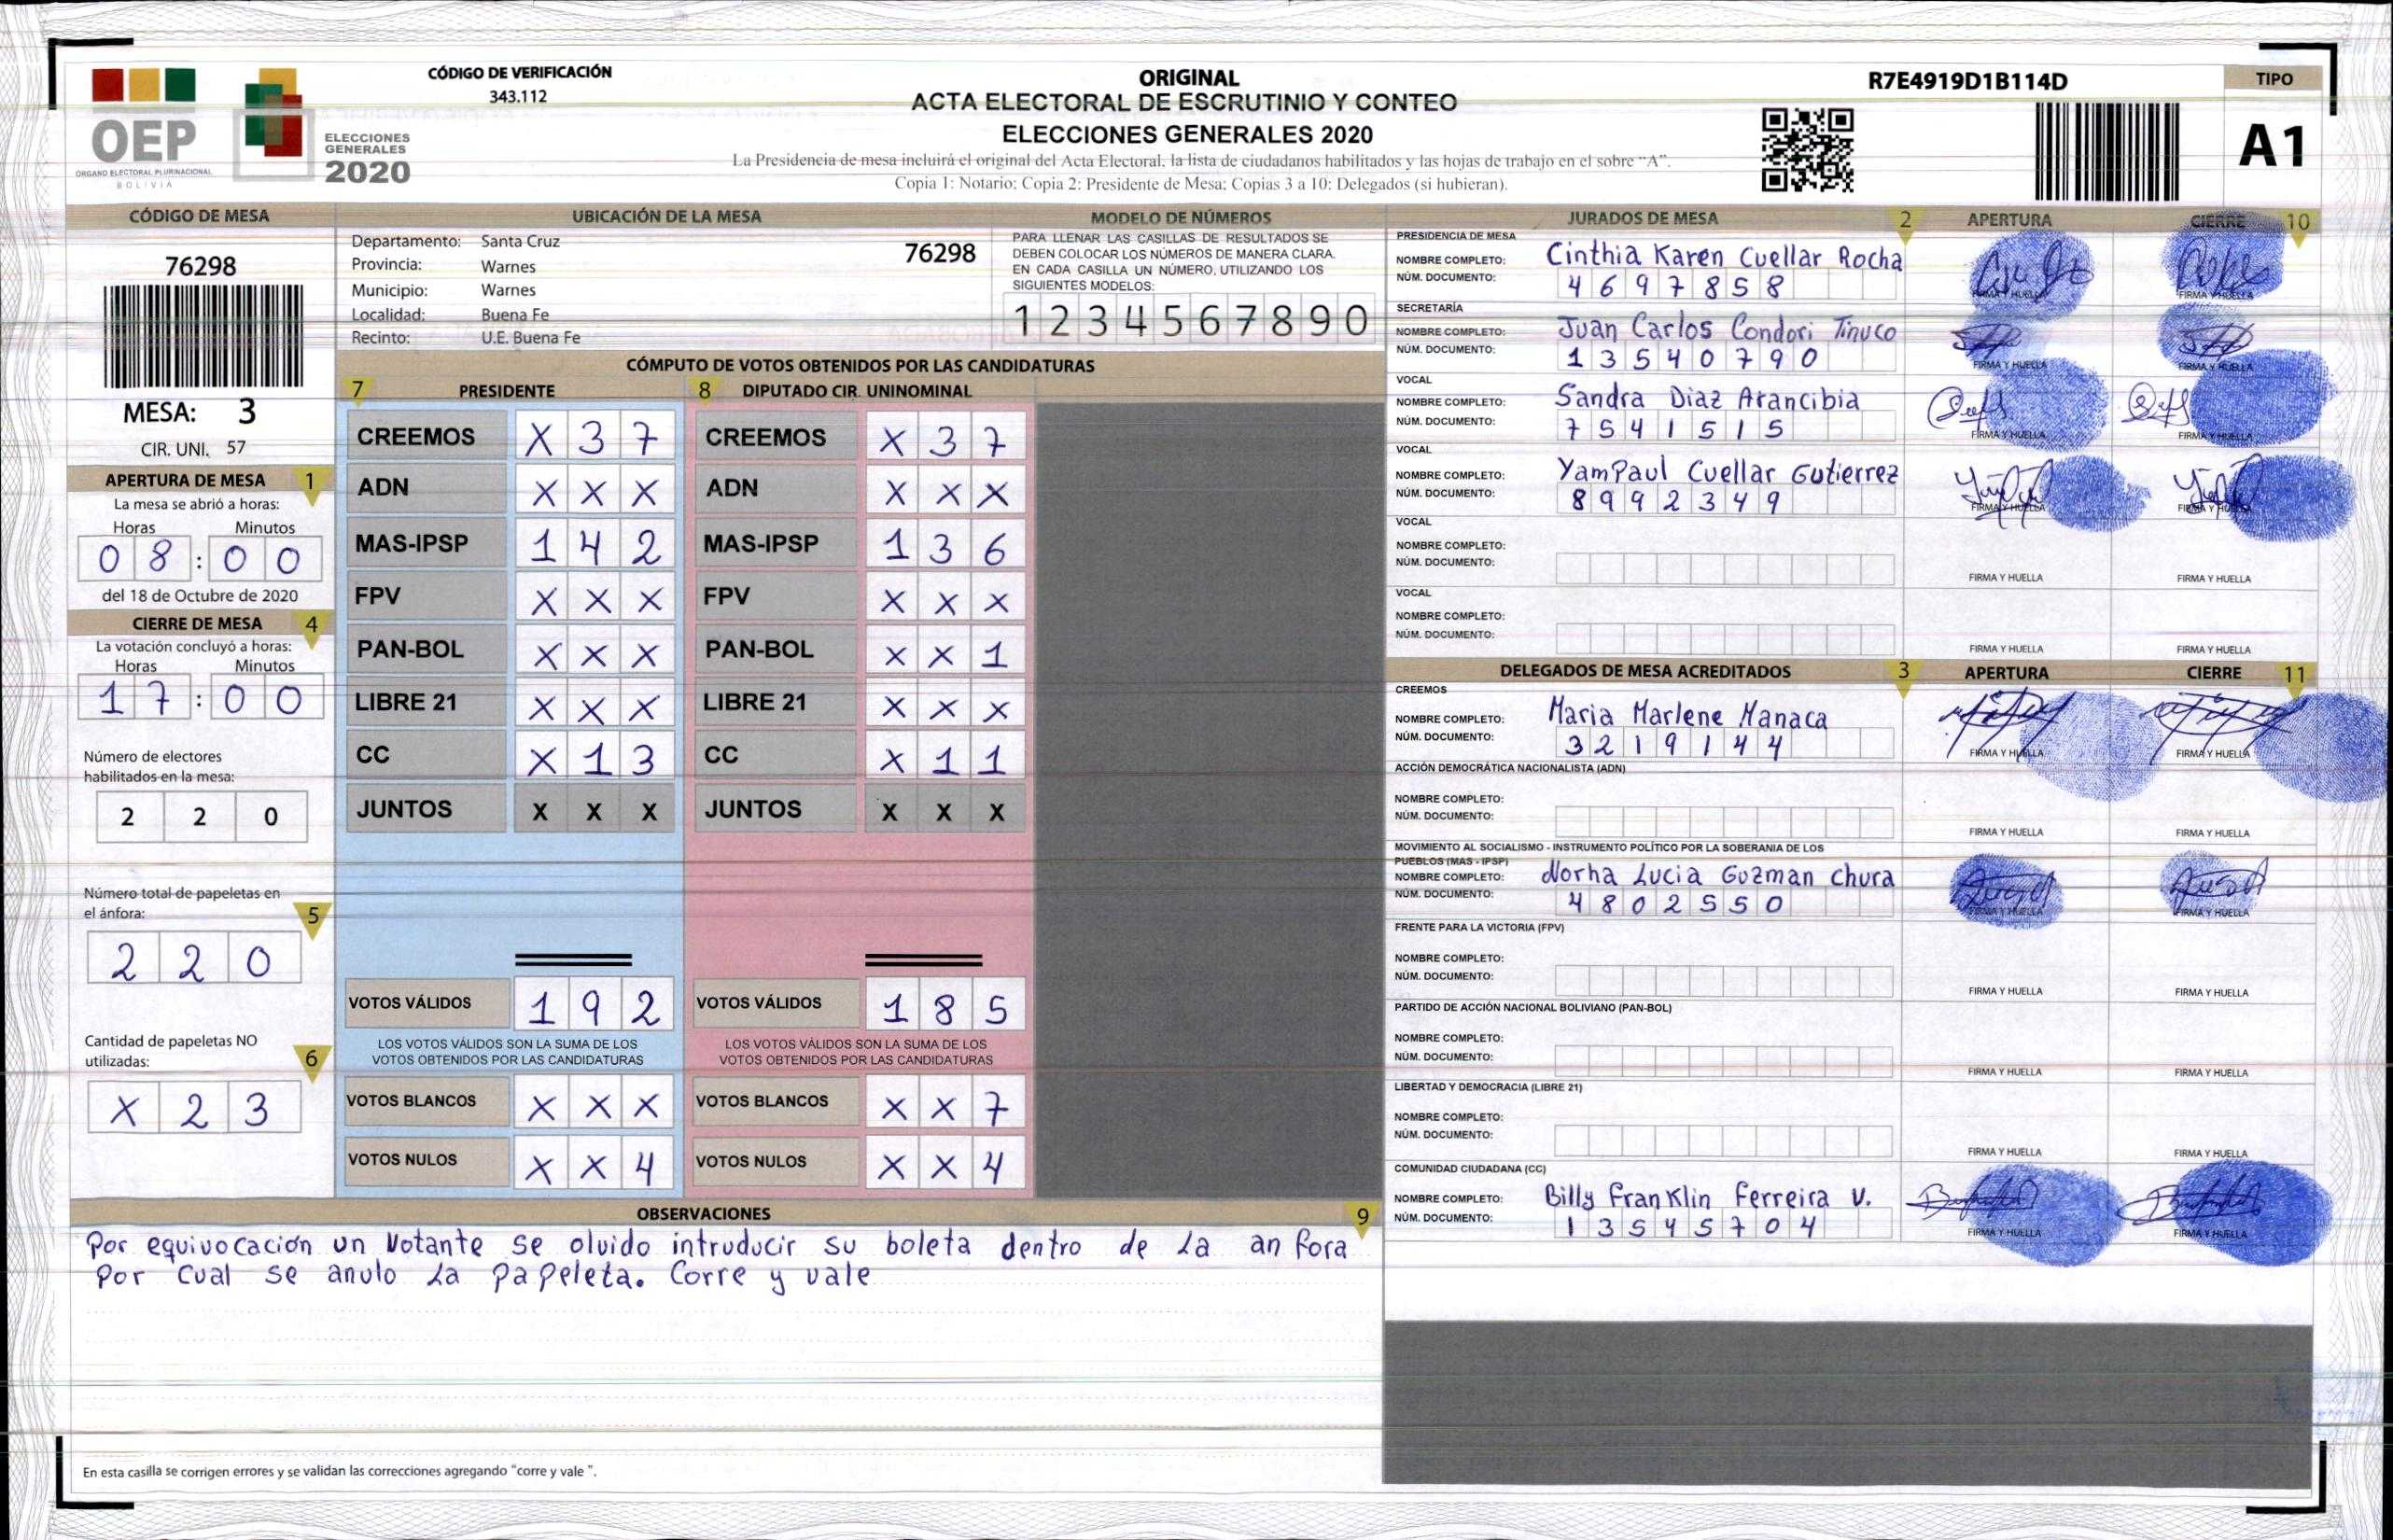 OEP
ÓRGANO ELECTORAL PLURINACIONAL
BOLIVIA
ELECCIONES
GENERALES
2020
CÓDIGO DE VERIFICACIÓN
343.112
ORIGINAL
ACTA ELECTORAL DE ESCRUTINIO Y CONTEO
ELECCIONES GENERALES 2020
La Presidencia de mesa incluirá el original del Acta Electoral, la lista de ciudadanos habilitados y las hojas de trabajo en el sobre "A".
Copia 1: Notario; Copia 2: Presidente de Mesa; Copias 3 a 10: Delegados (si hubieran).
R7E4919D1B114D
TIPO
A1
CÓDIGO DE MESA
76298
MESA: 3
CIR. UNI. 57
APERTURA DE MESA 1
La mesa se abrió a horas:
Horas Minutos
0 8 : 0 0
del 18 de Octubre de 2020
CIERRE DE MESA 4
La votación concluyó a horas:
Horas Minutos
1 7 : 0 0
Número de electores
habilitados en la mesa:
2 2 0
Número total de papeletas en
el ánfora:
5
2 2 0
Cantidad de papeletas NO
utilizadas:
6
X 2 3
UBICACIÓN DE LA MESA
Departamento: Santa Cruz
76298
Provincia: Warnes
Municipio: Warnes
Localidad: Buena Fe
Recinto: U.E. Buena Fe
MODELO DE NÚMEROS
PARA LLENAR LAS CASILLAS DE RESULTADOS SE
DEBEN COLOCAR LOS NÚMEROS DE MANERA CLARA.
EN CADA CASILLA UN NÚMERO, UTILIZANDO LOS
SIGUIENTES MODELOS:
1 2 3 4 5 6 7 8 9 0
CÓMPUTO DE VOTOS OBTENIDOS POR LAS CANDIDATURAS
7 PRESIDENTE 8 DIPUTADO CIR. UNINOMINAL
CREEMOS X 3 7 CREEMOS X 3 7
ADN X X X ADN X X X
MAS-IPSP 1 4 2 MAS-IPSP 1 3 6
FPV X X X FPV X X X
PAN-BOL X X X PAN-BOL X X 1
LIBRE 21 X X X LIBRE 21 X X X
CC X 1 3 CC X 1 1
JUNTOS X X X JUNTOS X X X
VOTOS VÁLIDOS 1 9 2 VOTOS VÁLIDOS 1 8 5
LOS VOTOS VÁLIDOS SON LA SUMA DE LOS LOS VOTOS VÁLIDOS SON LA SUMA DE LOS
VOTOS OBTENIDOS POR LAS CANDIDATURAS VOTOS OBTENIDOS POR LAS CANDIDATURAS
VOTOS BLANCOS X X X VOTOS BLANCOS X X 7
VOTOS NULOS X X 4 VOTOS NULOS X X 4
OBSERVACIONES 9
Por equivocación un Votante se olvido intruducir su boleta dentro de La anfora
Por cual se anulo La papeleta. Corre y vale
En esta casilla se corrigen errores y se validan las correcciones agregando "corre y vale ".
JURADOS DE MESA 2 APERTURA CIERRE 10
PRESIDENCIA DE MESA
NOMBRE COMPLETO: Cinthia Karen Cuellar Rocha
NÚM. DOCUMENTO: 4 6 9 7 8 5 8
FIRMA Y HUELLA FIRMA Y HUELLA
SECRETARÍA
NOMBRE COMPLETO: Juan Carlos Condori Tinuco
NÚM. DOCUMENTO: 1 3 5 4 0 7 9 0
FIRMA Y HUELLA FIRMA Y HUELLA
VOCAL
NOMBRE COMPLETO: Sandra Diaz Arancibia
NÚM. DOCUMENTO: 7 5 4 1 5 1 5
FIRMA Y HUELLA FIRMA Y HUELLA
VOCAL
NOMBRE COMPLETO: YamPaul Cuellar Gutierrez
NÚM. DOCUMENTO: 8 9 9 2 3 4 9
FIRMA Y HUELLA FIRMA Y HUELLA
VOCAL
NOMBRE COMPLETO:
NÚM. DOCUMENTO:
FIRMA Y HUELLA FIRMA Y HUELLA
VOCAL
NOMBRE COMPLETO:
NÚM. DOCUMENTO:
FIRMA Y HUELLA FIRMA Y HUELLA
DELEGADOS DE MESA ACREDITADOS 3 APERTURA CIERRE 11
CREEMOS
NOMBRE COMPLETO: Maria Marlene Manaca
NÚM. DOCUMENTO: 3 2 1 9 1 4 4
FIRMA Y HUELLA FIRMA Y HUELLA
ACCIÓN DEMOCRÁTICA NACIONALISTA (ADN)
NOMBRE COMPLETO:
NÚM. DOCUMENTO:
FIRMA Y HUELLA FIRMA Y HUELLA
MOVIMIENTO AL SOCIALISMO - INSTRUMENTO POLÍTICO POR LA SOBERANIA DE LOS
PUEBLOS (MAS - IPSP)
NOMBRE COMPLETO: Norha Lucia Guzman Chura
NÚM. DOCUMENTO: 4 8 0 2 5 5 0
FIRMA Y HUELLA FIRMA Y HUELLA
FRENTE PARA LA VICTORIA (FPV)
NOMBRE COMPLETO:
NÚM. DOCUMENTO:
FIRMA Y HUELLA FIRMA Y HUELLA
PARTIDO DE ACCIÓN NACIONAL BOLIVIANO (PAN-BOL)
NOMBRE COMPLETO:
NÚM. DOCUMENTO:
FIRMA Y HUELLA FIRMA Y HUELLA
LIBERTAD Y DEMOCRACIA (LIBRE 21)
NOMBRE COMPLETO:
NÚM. DOCUMENTO:
FIRMA Y HUELLA FIRMA Y HUELLA
COMUNIDAD CIUDADANA (CC)
NOMBRE COMPLETO: Billy Franklin Ferreira V.
NÚM. DOCUMENTO: 1 3 5 4 5 7 0 4
FIRMA Y HUELLA FIRMA Y HUELLA